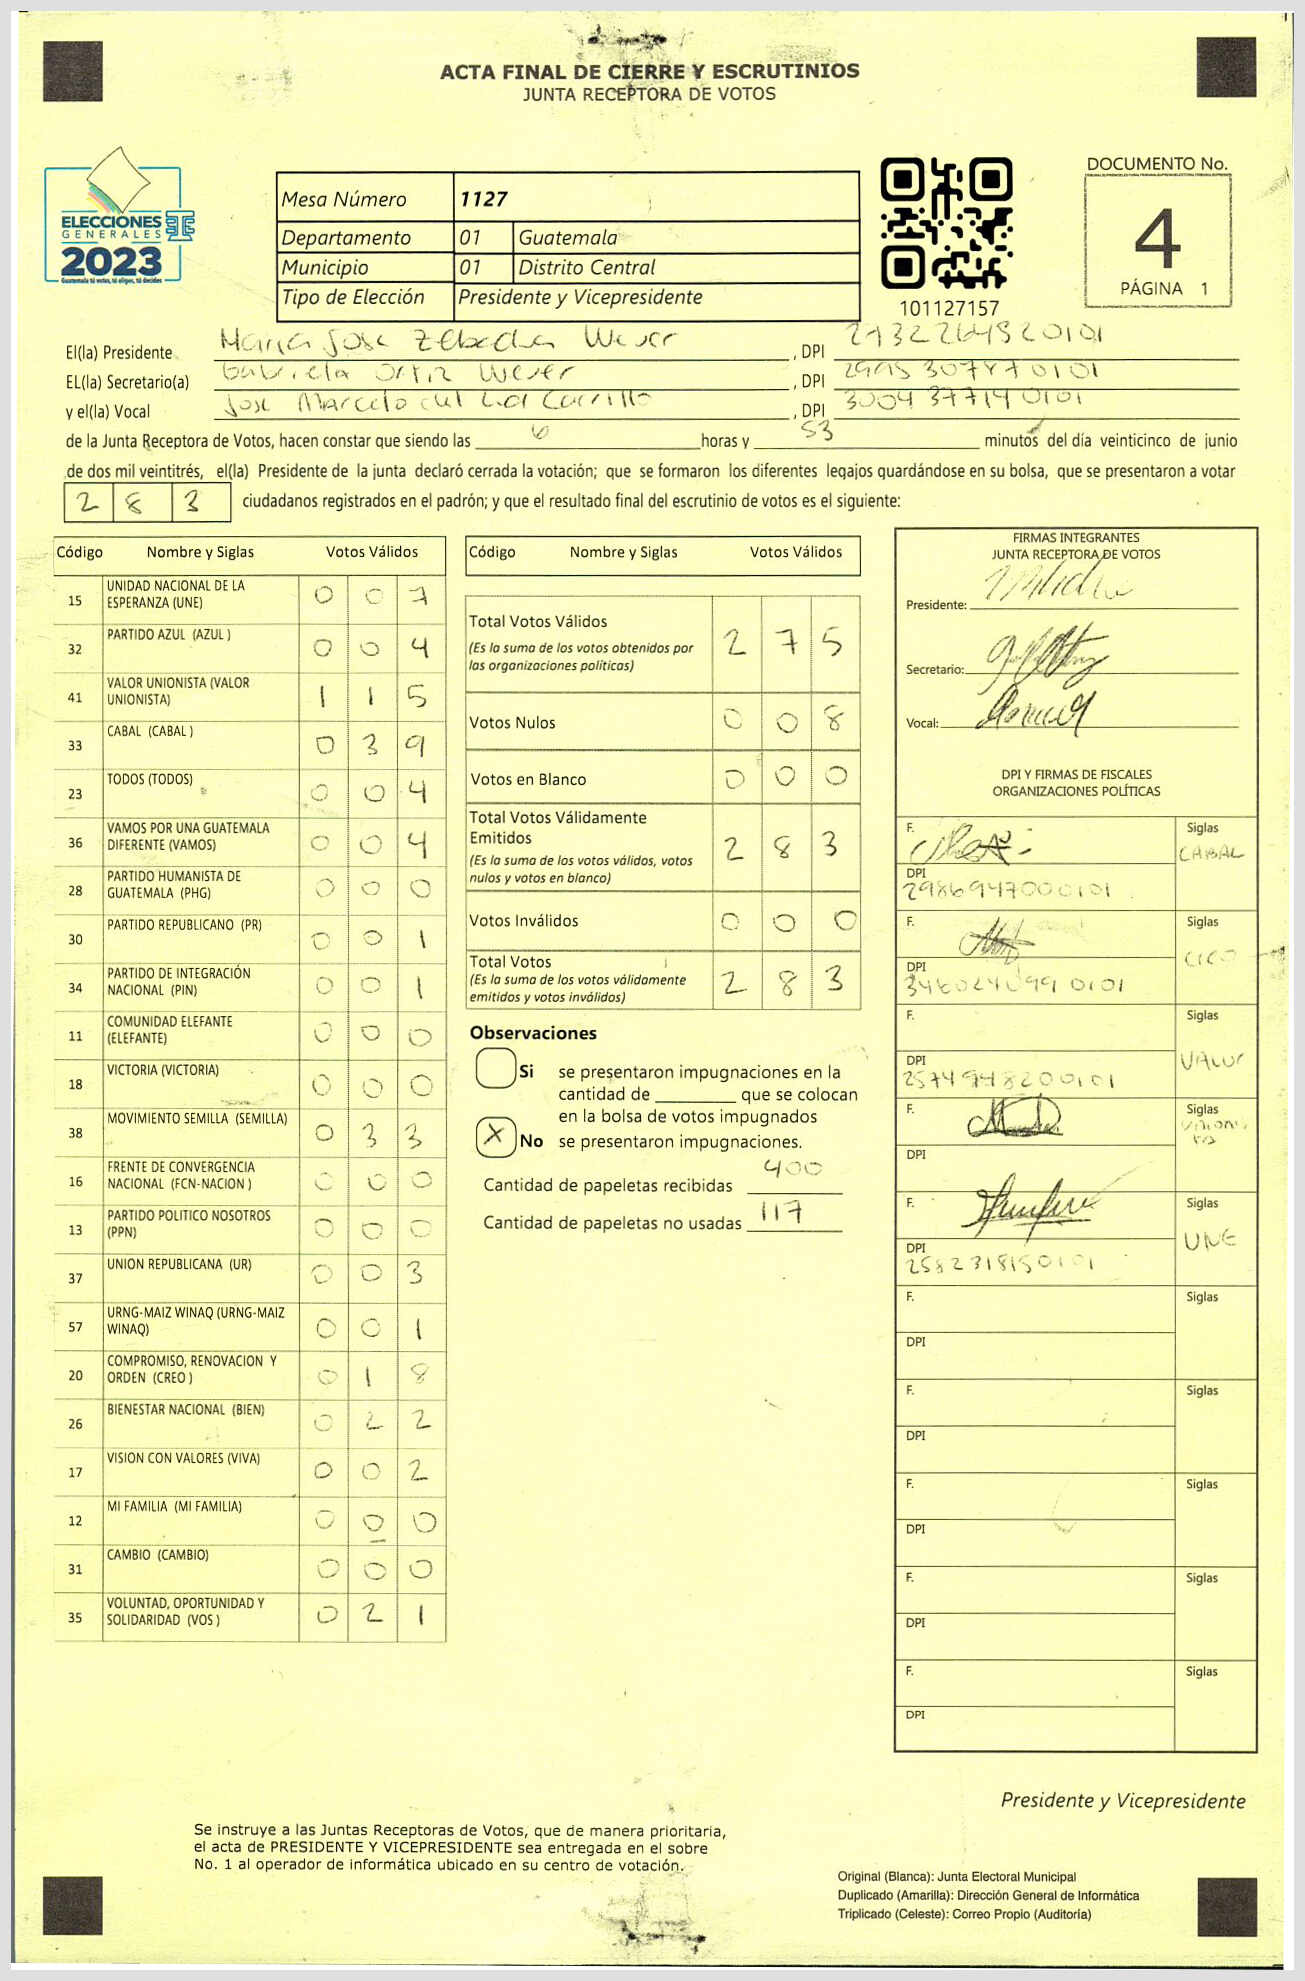 ACTA FINAL DE CIERRE Y ESCRUTINIOS
JUNTA RECEPTORA DE VOTOS
ELECCIONES
GENERALES
2023
Guatemala tú votas, tú eliges, tú decides
Mesa Número 1127
Departamento 01 Guatemala
Municipio 01 Distrito Central
Tipo de Elección Presidente y Vicepresidente
101127157
DOCUMENTO No.
4
PÁGINA 1
El(la) Presidente Maria Jose Zebadua Wever , DPI
EL(la) Secretario(a) Gabriela Ortiz Wever , DPI
y el(la) Vocal Jose Marcelo del Cid Carrillo , DPI 3004377140101
de la Junta Receptora de Votos, hacen constar que siendo las 6 horas y 53 minutos del día veinticinco de junio
de dos mil veintitrés, el(la) Presidente de la junta declaró cerrada la votación; que se formaron los diferentes legajos quardándose en su bolsa, que se presentaron a votar
2 8 3 ciudadanos registrados en el padrón; y que el resultado final del escrutinio de votos es el siguiente:
Código Nombre y Siglas Votos Válidos
15 UNIDAD NACIONAL DE LA ESPERANZA (UNE) 0 0 7
32 PARTIDO AZUL (AZUL ) 0 0 4
41 VALOR UNIONISTA (VALOR UNIONISTA) 1 1 5
33 CABAL (CABAL ) 0 3 9
23 TODOS (TODOS) 0 0 4
36 VAMOS POR UNA GUATEMALA DIFERENTE (VAMOS) 0 0 4
28 PARTIDO HUMANISTA DE GUATEMALA (PHG) 0 0 0
30 PARTIDO REPUBLICANO (PR) 0 0 1
34 PARTIDO DE INTEGRACIÓN NACIONAL (PIN) 0 0 1
11 COMUNIDAD ELEFANTE (ELEFANTE) 0 0 0
18 VICTORIA (VICTORIA) 0 0 0
38 MOVIMIENTO SEMILLA (SEMILLA) 0 3 3
16 FRENTE DE CONVERGENCIA NACIONAL (FCN-NACION ) 0 0 0
13 PARTIDO POLITICO NOSOTROS (PPN) 0 0 0
37 UNION REPUBLICANA (UR) 0 0 3
57 URNG-MAIZ WINAQ (URNG-MAIZ WINAQ) 0 0 1
20 COMPROMISO, RENOVACION Y ORDEN (CREO ) 0 1 8
26 BIENESTAR NACIONAL (BIEN) 0 2 2
17 VISION CON VALORES (VIVA) 0 0 2
12 MI FAMILIA (MI FAMILIA) 0 0 0
31 CAMBIO (CAMBIO) 0 0 0
35 VOLUNTAD, OPORTUNIDAD Y SOLIDARIDAD (VOS ) 0 2 1
Código Nombre y Siglas Votos Válidos
Total Votos Válidos 2 7 5
(Es la suma de los votos obtenidos por
las organizaciones políticas)
Votos Nulos 0 0 8
Votos en Blanco 0 0 0
Total Votos Válidamente
Emitidos 2 8 3
(Es la suma de los votos válidos, votos
nulos y votos en blanco)
Votos Inválidos 0 0 0
Total Votos 2 8 3
(Es la suma de los votos válidamente
emitidos y votos inválidos)
Observaciones
Si se presentaron impugnaciones en la
cantidad de ________ que se colocan
en la bolsa de votos impugnados
X No se presentaron impugnaciones.
Cantidad de papeletas recibidas 400
Cantidad de papeletas no usadas 117
FIRMAS INTEGRANTES
JUNTA RECEPTORA DE VOTOS
Presidente:
Secretario:
Vocal:
DPI Y FIRMAS DE FISCALES
ORGANIZACIONES POLÍTICAS
F. Siglas
CABAL
DPI
2986947000101
F. Siglas
DPI
F. Siglas
VALOR
DPI
2574948200101
F. Siglas
DPI
F. Siglas
UNE
DPI
2582318150101
F. Siglas
DPI
F. Siglas
DPI
F. Siglas
DPI
F. Siglas
DPI
F. Siglas
DPI
Presidente y Vicepresidente
Se instruye a las Juntas Receptoras de Votos, que de manera prioritaria,
el acta de PRESIDENTE Y VICEPRESIDENTE sea entregada en el sobre
No. 1 al operador de informática ubicado en su centro de votación.
Original (Blanca): Junta Electoral Municipal
Duplicado (Amarilla): Dirección General de Informática
Triplicado (Celeste): Correo Propio (Auditoría)